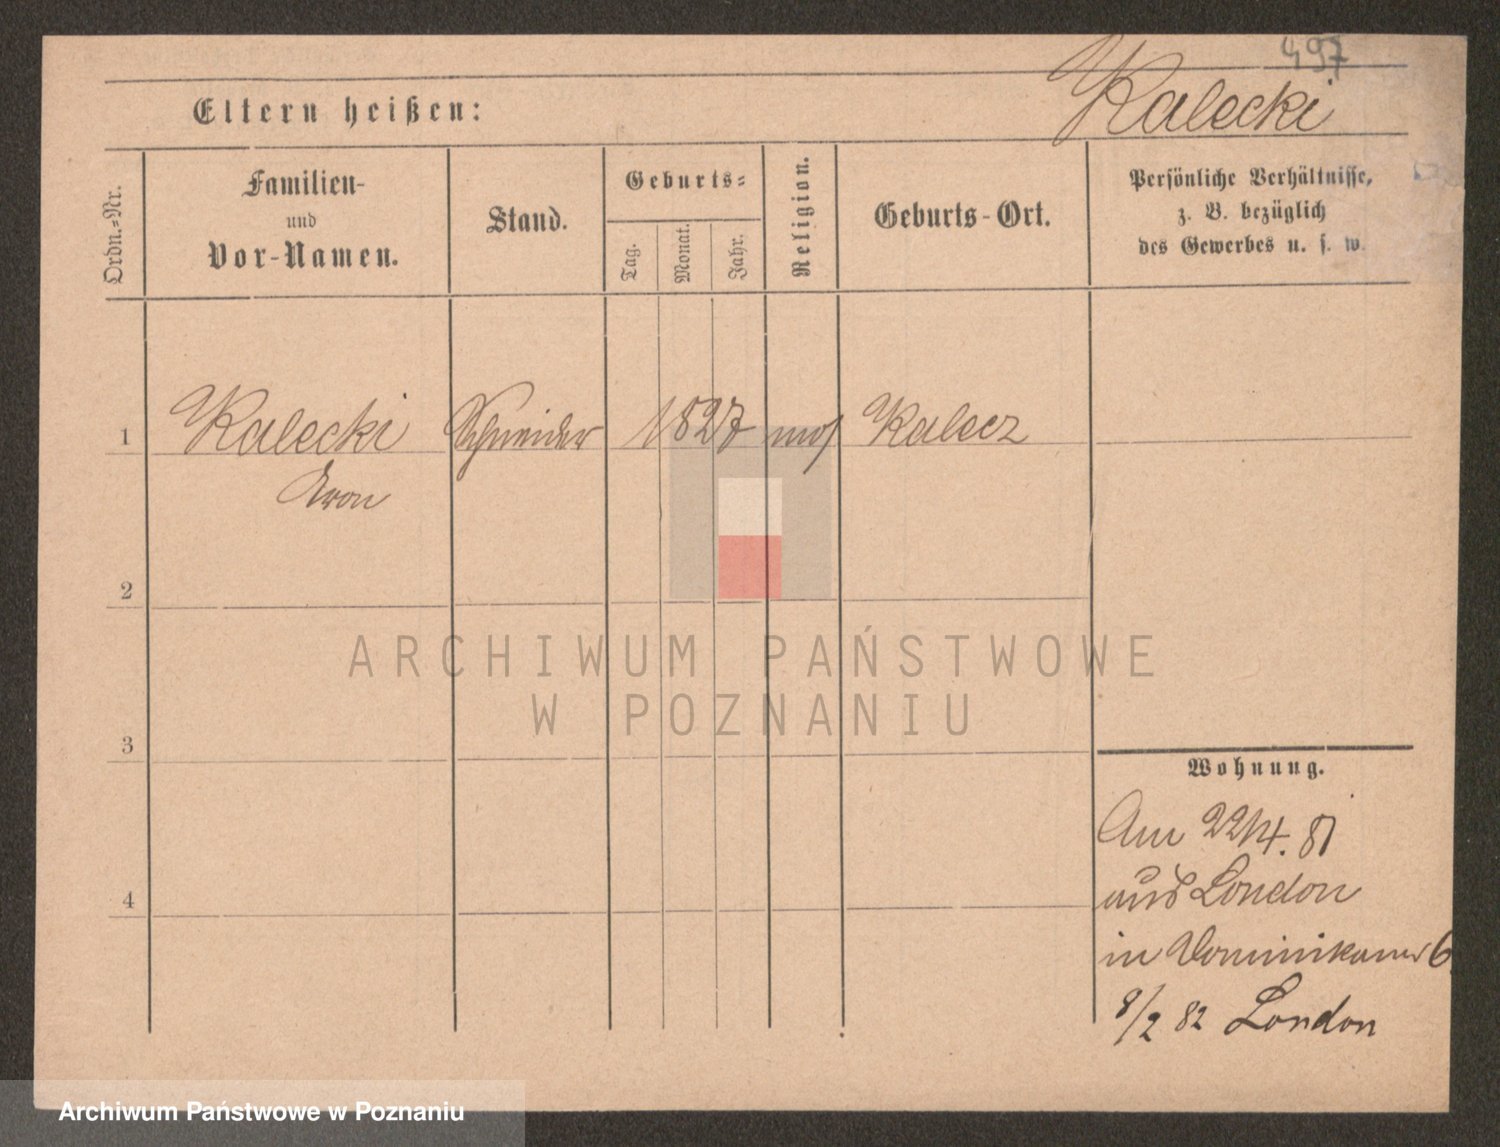 497
Eltern heißen:
Kalecki
Ordn.=Nr.
Familien-
und
Vor-Namen.
Stand.
Geburts=
Tag.
Monat.
Jahr.
Religion.
Geburts-Ort.
Persönliche Verhältnisse,
z. B. bezüglich
des Gewerbes u. s. w.
1 Kalecki Schneider 1827 mos Kalecz
Aron
2
3
4
ARCHIWUM PAŃSTWOWE
W POZNANIU
Wohnung.
Am 22/4. 81
aus London
in Dominikaner 6
8/2 82 London
Archiwum Państwowe w Poznaniu